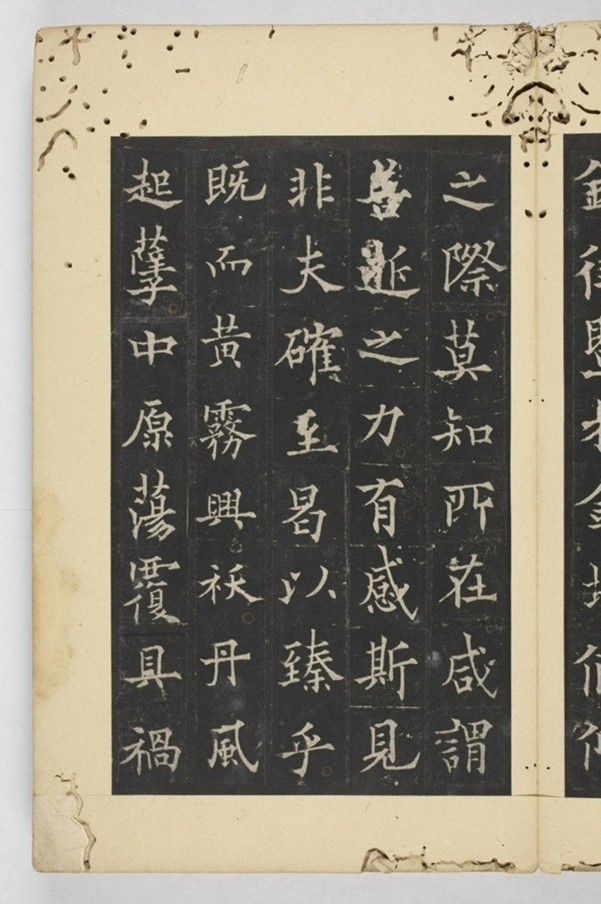 之際莫知所在咸謂
善逝之力有感斯見
非夫確至曷以臻乎
既而黃霧興祅丹風
起孽中原蕩覆具禍